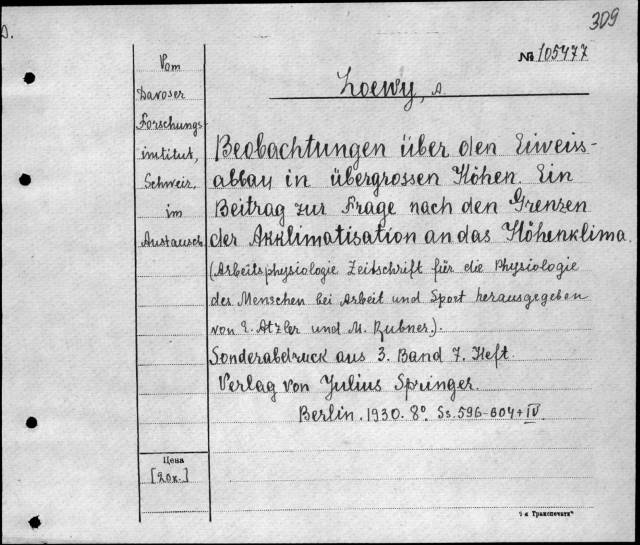 309
№ 105477
Loewy, A.
Vom
Davoser
Forschungs-
institut,
Schweiz,
im
Austausch
Beobachtungen über den Eiweiss-
abbau in übergrossen Höhen. Ein
Beitrag zur Frage nach den Grenzen
der Akklimatisation an das Höhenklima.
(Arbeitsphysiologie Zeitschrift für die Physiologie
des Menschen bei Arbeit und Sport herausgegeben
von E. Atzler und M. Rubner.).
Sonderabdruck aus 3. Band 7. Heft.
Verlag von Julius Springer.
Berlin. 1930. 8°. Ss. 596-604+IV.
Цена
[20к.]
Транспечати"